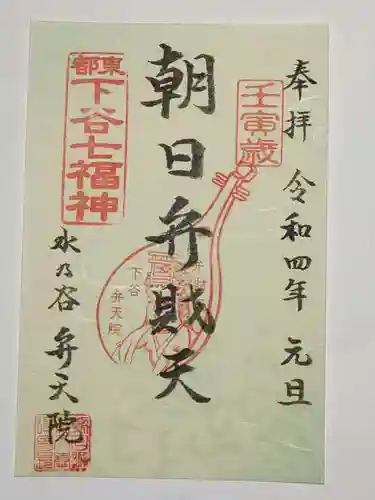 奉拝 令和四年 元旦
壬寅歳
朝日弁財天
下谷
弁天院
東都
下谷七福神
水乃谷 弁天院